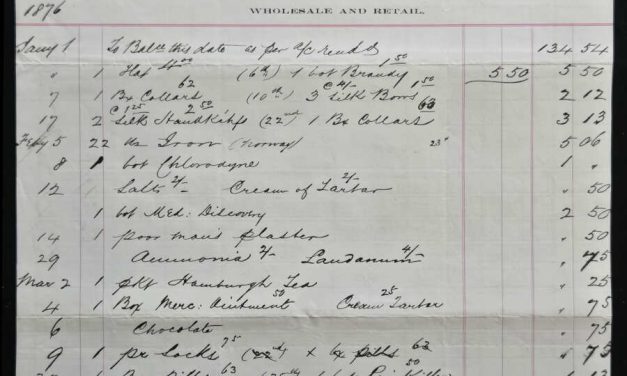 1876 WHOLESALE AND RETAIL.
Jany 1 To Balce this date as per a/c rendd 134 54
" 1 Hat 4.00 (6th) 1 bot Brandy 1 50 5 50 5 50
7 1 Bx Collars 62 (10th) 3 Silk Bows @ 4/- 1 50 2 12
17 2 Silk Handkchfs @ 1 25 2 50 (22nd) 1 Bx Collars 63 3 13
Feby 5 22 lbs Iron (Norway) 23c 5 06
8 1 bot Chlorodyne 1 "
12 Salts 2/- Cream of Tartar 2/- " 50
1 bot Med: Discovery 2 50
14 1 poor man's plaster " 50
29 Ammonia 2/- Laudanum 4/- " 75
Mar 2 1 pkt Hamburgh Tea " 25
4 1 Box Merc: Ointment 50 Cream Tartar 25 " 75
6 Chocolate " 75
9 1 pr Socks 75 (22nd) x bx pills 62 " 75
1 Bx Pills 63 (25th) 50 1 13